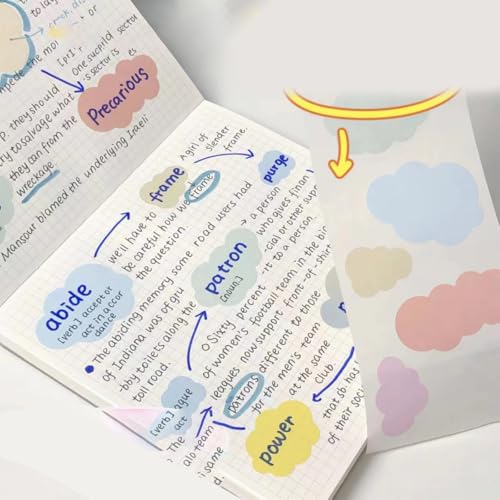 One sucpild sector
mpede the mor
Precarious
p. they should
ry to salvage what
they can from the
wreckage
Mansour blamed the underlying Israeli
A girl of
slender
frame.
frame
purge
we'll have to
be careful how we frame
the question.
abide
[verb] accept or
act in accor
dance
The abiding memory some road users had
of Indiana was of gr
bby toilets along the
toll road.
patron
[noun.]
a person
who gives finan
cial or other supp
rt to a person
Sixty percent
of women's football team in the
leagues now support front-of-shirt
patrons different to those
for the men's team
at the same
club
power
that sb has
of their soc
[verb]
act
The
alo team
said same